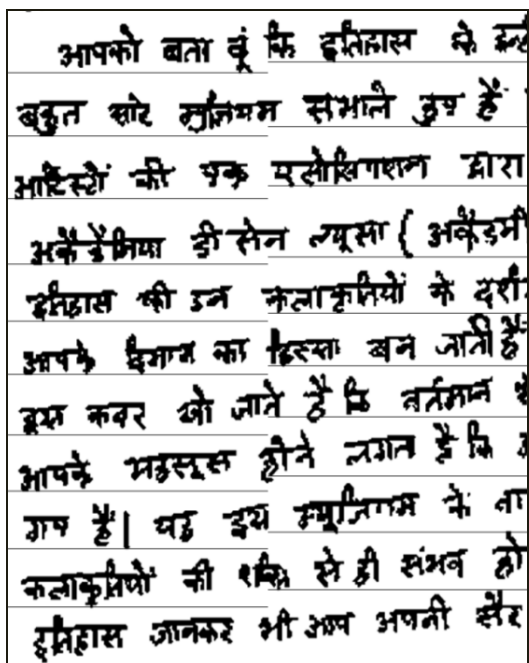 आपको बता दूं कि इतिहास के इन्
बहुत सारे म्यूजियम संभाले हुए हैं
आर्टिस्टों की एक एसोसिएशन द्वारा
अकैडेमिया डी सेन ल्यूसा ( अकैडमी
इतिहास की इन कलाकृतियों के दर्श
आपके दिमाग का हिस्सा बन जाती है
इस कदर खो जाते हैं कि वर्तमान
आपके महसूस होने लगता है कि
गए हैं| यह इस म्यूजियम के
कलाकृतियों की शक्ति से ही संभव हो
इतिहास जानकर भी आप अपनी सैर